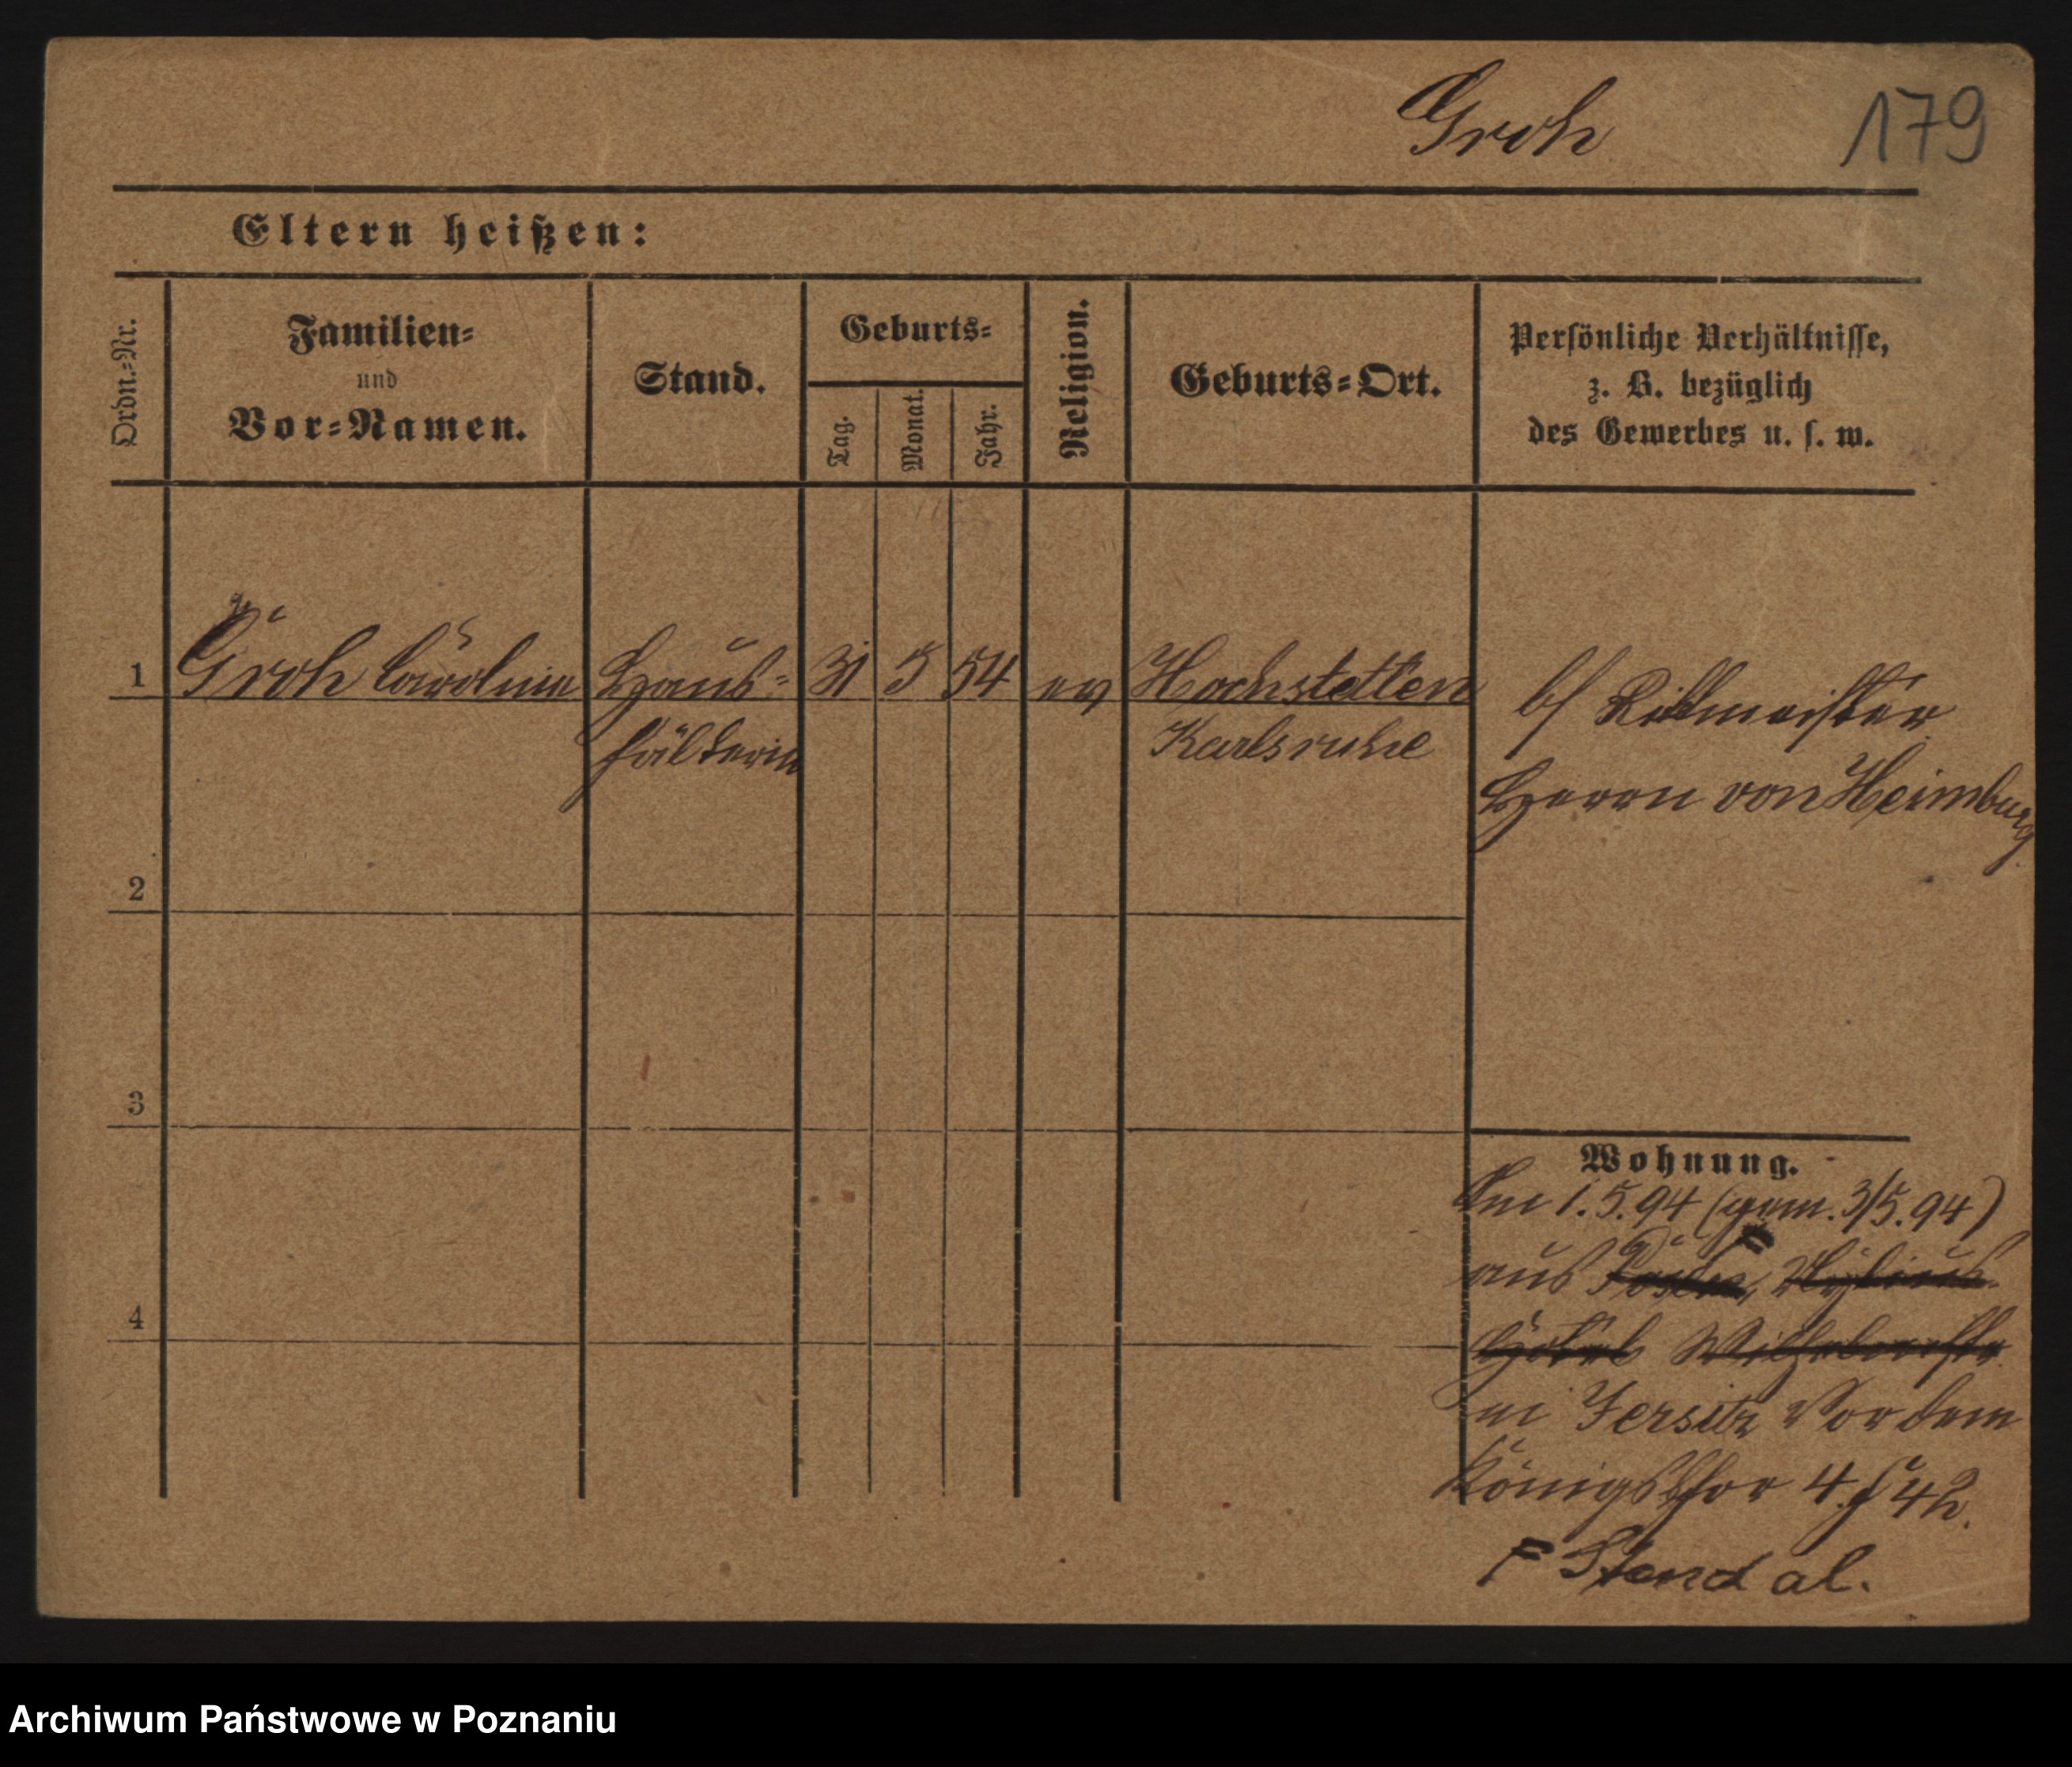 Groh 179
Eltern heißen:
Ordn.-Nr.
Familien-
und
Vor-Namen.
Stand.
Geburts-
Tag.
Monat.
Jahr.
Religion.
Geburts-Ort.
Persönliche Verhältnisse,
z. B. bezüglich
des Gewerbes u. s. w.
1 Groh Caroline Haus- 31 5 54 ev Hochstetten
hälterin Karlsruhe
b/ Rittmeister
Herrn von Heimburg
2
3
4
Wohnung.
Am 1.5.94 (gem. 3/5.94)
aus Posen, Mylius
Hotel Wilhelmstr
in Jersitz Vor dem
Königsthor 4
F Stendal.
Archiwum Państwowe w Poznaniu